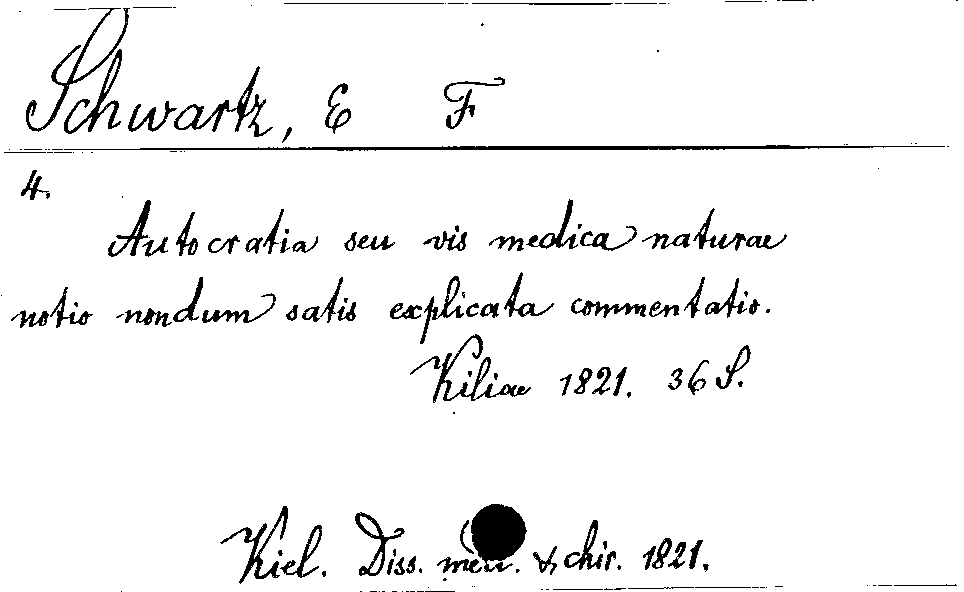 Schwartz, E F
4.
Autocratia seu vis medica naturae
notio nondum satis explicata commentatio.
Kiliae 1821. 36 S.
Kiel. Diss. med. & chir. 1821.